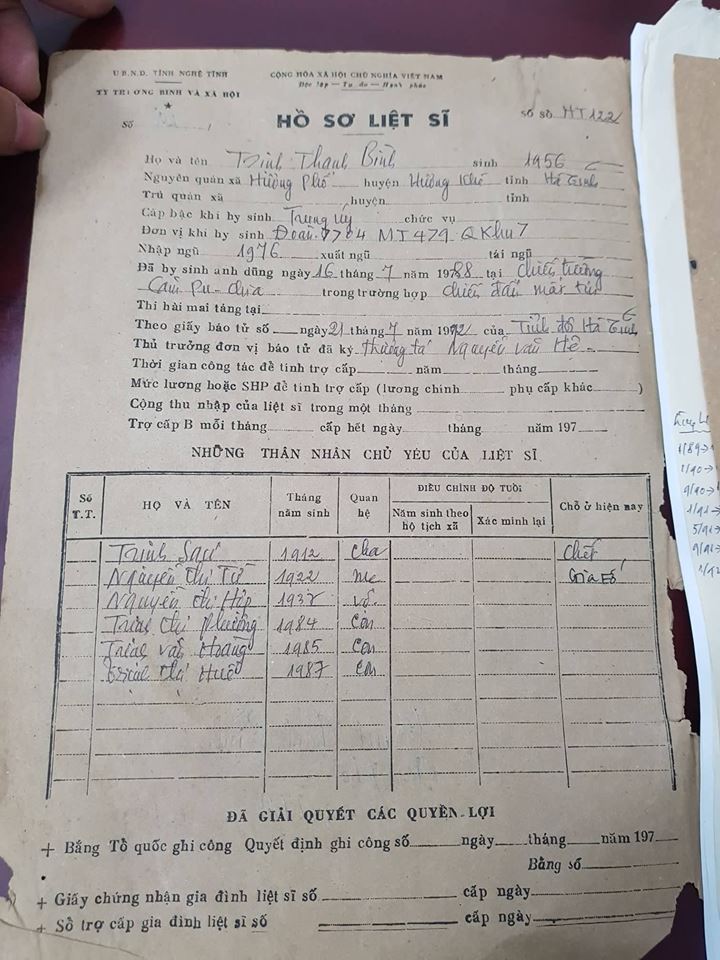 U B.N.D. TỈNH NGHỆ TĨNH
CỘNG HÒA XÃ HỘI CHỦ NGHĨA VIỆT NAM
TY THƯƠNG BINH VÀ XÃ HỘI
Độc lập — Tự do — Hạnh phúc
Số
HỒ SƠ LIỆT SĨ
Số sổ HT122
Họ và tên Trịnh Thanh Bình sinh 1956
Nguyên quán xã Hương Phố huyện Hương Khê tỉnh Hà Tĩnh
Trú quán xã huyện tỉnh
Cấp bậc khi hy sinh Trung úy chức vụ
Đơn vị khi hy sinh Đoàn 7704 MT479 QKhu7
Nhập ngũ 1976 xuất ngũ tái ngũ
Đã hy sinh anh dũng ngày 16 tháng 7 năm 1988 tại Chiến trường
Căm Pu-chia trong trường hợp chiến đấu mất tích
Thi hài mai táng tại
Theo giấy báo tử số ngày 21 tháng 7 năm 1992 của Tỉnh đội Hà Tĩnh
Thủ trưởng đơn vị báo tử đã ký thượng tá Nguyễn văn Hê
Thời gian công tác để tính trợ cấp năm tháng
Mức lương hoặc SHP để tính trợ cấp (lương chính phụ cấp khác )
Cộng thu nhập của liệt sĩ trong một tháng
Trợ cấp B mỗi tháng cấp hết ngày tháng năm 197
NHỮNG THÂN NHÂN CHỦ YẾU CỦA LIỆT SĨ
Số T.T. HỌ VÀ TÊN Tháng năm sinh Quan hệ ĐIỀU CHỈNH ĐỘ TUỔI Chỗ ở hiện nay
Năm sinh theo hộ tịch xã Xác minh lại
Trịnh 1912 cha chết
Nguyễn thị Từ 1922 mẹ Già Yếu
Nguyễn thị 1937 vợ
Trịnh thị Phương 1984 Con
Trịnh văn Hoàng 1985 Con
Trịnh thị Huế 1987 Con
ĐÃ GIẢI QUYẾT CÁC QUYỀN LỢI
+ Bằng Tổ quốc ghi công Quyết định ghi công số ngày tháng năm 197
Bằng số
+ Giấy chứng nhận gia đình liệt sĩ số cấp ngày
+ Sổ trợ cấp gia đình liệt sĩ số cấp ngày